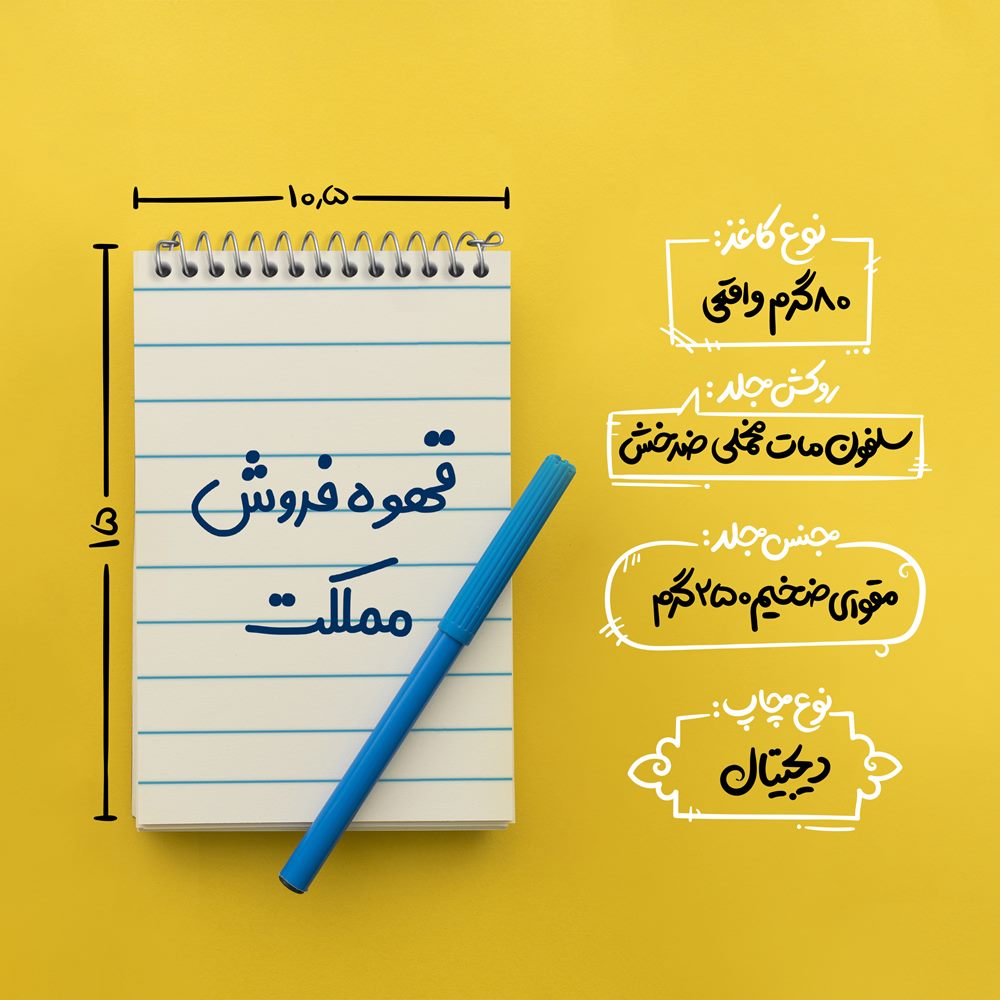 ۱۰٫۵
۱۵
قهوه فروش
مملکت
نوع کاغذ:
۸۰گرم واقعی
روکش جلد:
سلفون مات مخملی ضدخش
جنس جلد:
مقوای ضخیم ۲۵۰گرم
نوع چاپ:
دیجیتال